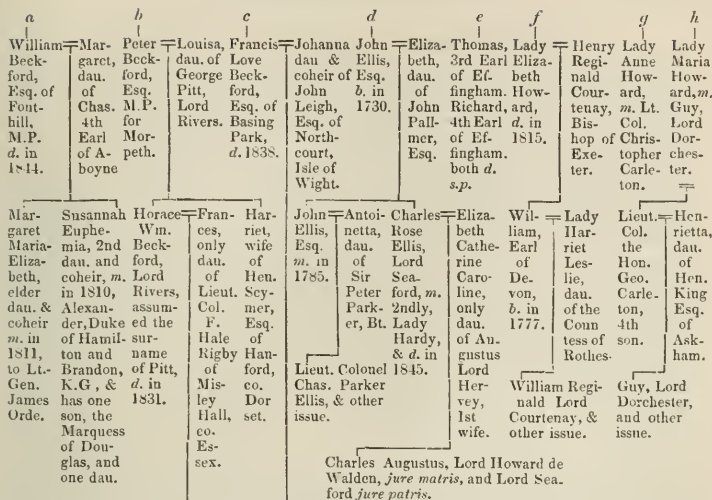 a
b
c
d
e
f
g
h
William
Beck-
ford,
Esq. of
Font-
hill,
M.P.
d. in
1844.
Mar-
garet,
dau.
of
Chas.
4th
Earl
of A-
boyne
Peter
Beck-
ford,
Esq.
M.P.
for
Mor-
peth.
Louisa,
dau. of
George
Pitt,
Lord
Rivers.
Francis
Love
Beck-
ford,
Esq. of
Basing
Park,
d. 1838.
Johanna
dau &
coheir of
John
Leigh,
Esq. of
North-
court,
Isle of
Wight.
John
Ellis,
Esq.
b. in
1730.
Eliza-
beth,
dau.
of
John
Pall-
mer,
Esq.
Thomas,
3rd Earl
of Ef-
fingham.
Richard,
4th Earl
of Ef-
fingham.
both d.
s.p.
Lady
Eliza-
beth
How-
ard,
d. in
1815.
Henry
Regi-
nald
Cour-
tenay,
Bis-
hop of
Exe-
ter.
Lady
Anne
How-
ard,
m. Lt.
Col.
Chris-
topher
Carle-
ton.
Lady
Maria
How-
ard, m.
Guy,
Lord
Dor-
ches-
ter.
Mar-
garet
Maria-
Eliza-
beth,
elder
dau. &
coheir
m. in
1811,
to Lt.-
Gen.
James
Orde.
Susannah
Euphe-
mia, 2nd
dau. and
coheir, m.
in 1810,
Alexan-
der, Duke
of Hamil-
ton and
Brandon,
K.G, &
has one
son, the
Marquess
of Dou-
glas, and
one dau.
Horace
Wm.
Beck-
ford,
Lord
Rivers,
assum-
ed the
sur-
name
of Pitt,
d. in
1831.
Fran-
ces,
only
dau.
of
Lieut.
Col.
F.
Hale
of
Mis-
ley
Hall,
co.
Es-
sex.
Har-
riet,
wife
of
Hen.
Scy-
mer,
Esq.
of
Rigby
Han-
ford,
co.
Dor
set.
John
Ellis,
Esq.
m. in
1785.
Antoi-
netta,
dau.
of
Sir
Peter
Park-
er, Bt.
Charles
Rose
Ellis,
Lord
Sea-
ford, m.
2ndly,
Lady
Hardy,
& d. in
1845.
Eliza
beth
Cathe-
rine
Caro-
line,
only
dau.
of Au-
gustus
Lord
Her-
vey,
1st
wife.
Wil-
liam,
Earl
of
De-
von,
b. in
1777.
Lady
Har-
riet
Les-
lie,
dau.
of the
Coun
tess of
Rothes.
Lieut.
Col.
the
Hon.
Geo.
Carle-
ton,
4th
son.
Hen-
rietta,
dau.
of
Hen.
King
Esq.
of
Ask-
ham.
Lieut. Colonel
Chas. Parker
Ellis, & other
issue.
William Regi-
nald Lord
Courtenay, &
other issue.
Guy, Lord
Dorchester,
and other
issue.
Charles Augustus, Lord Howard de
Walden, jure matris, and Lord Sea-
ford jure patris.